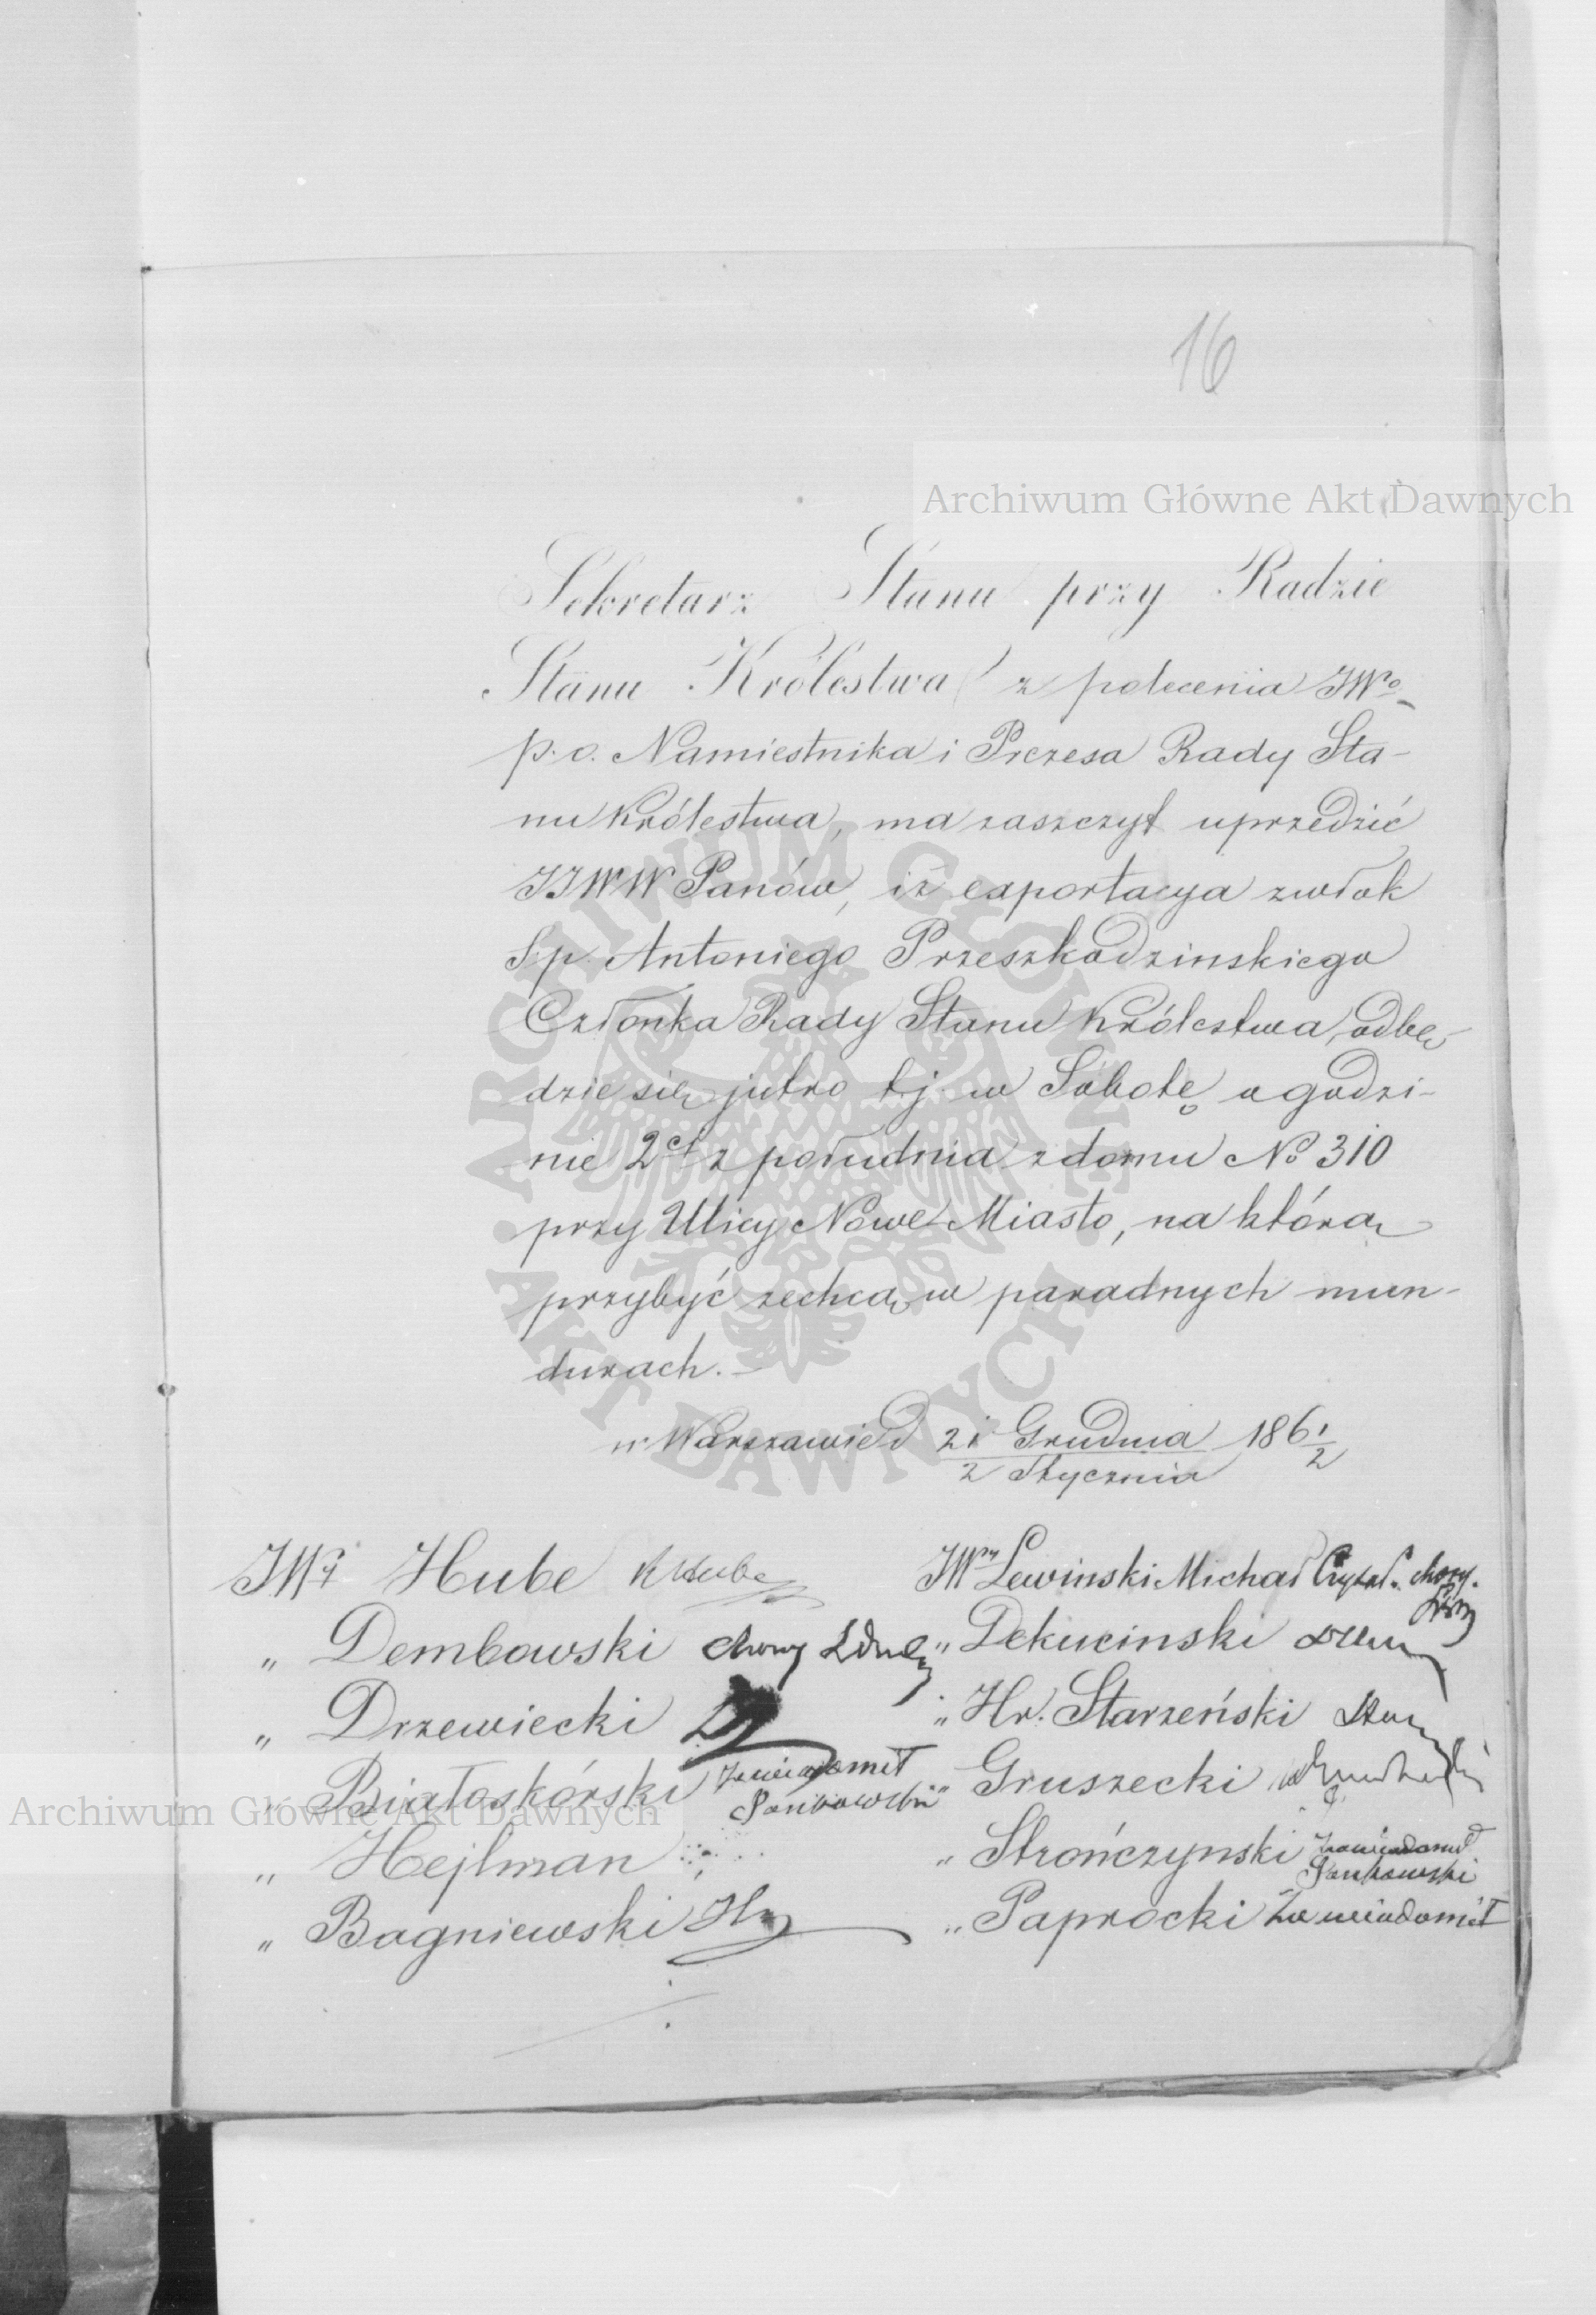 16
Archiwum Główne Akt Dawnych
Sekretarz Stanu przy Radzie
Stanu Królestwa z polecenia JWo
p.o. Namiestnika i Prezesa Rady Sta-
nu Królestwa, ma zaszczyt uprzedzić
JJWW Panów, iż exportacya zwłok
ś.p. Antoniego Przeszkodzinskiego
Członka Rady Stanu Królestwa, odbę-
dzie się jutro t.j. w Sobotę o godzi-
nie 2éj z południa z domu No 310
przy Ulicy Nowe-Miasto, na którą
przybyć zechcą w paradnych mun-
durach.-
w Warszawie d 21 Grudnia 1861/
2 Stycznia 2
JWy Hube RHube
" Dembowski chory
" Drzewiecki
" Białoskórski Zawiadomił
Pankowski
" Hejlman
" Bagniewski
JWny Lewinski Michał Czytał. chory.
" Dekucinski
" Hr. Starzeński
" Gruszecki
" Strończynski Zawiadomił
Pankowski
" Paprocki Zawiadomił
Archiwum Główne Akt Dawnych
ARCHIWUM GŁÓWNE
AKT DAWNYCH